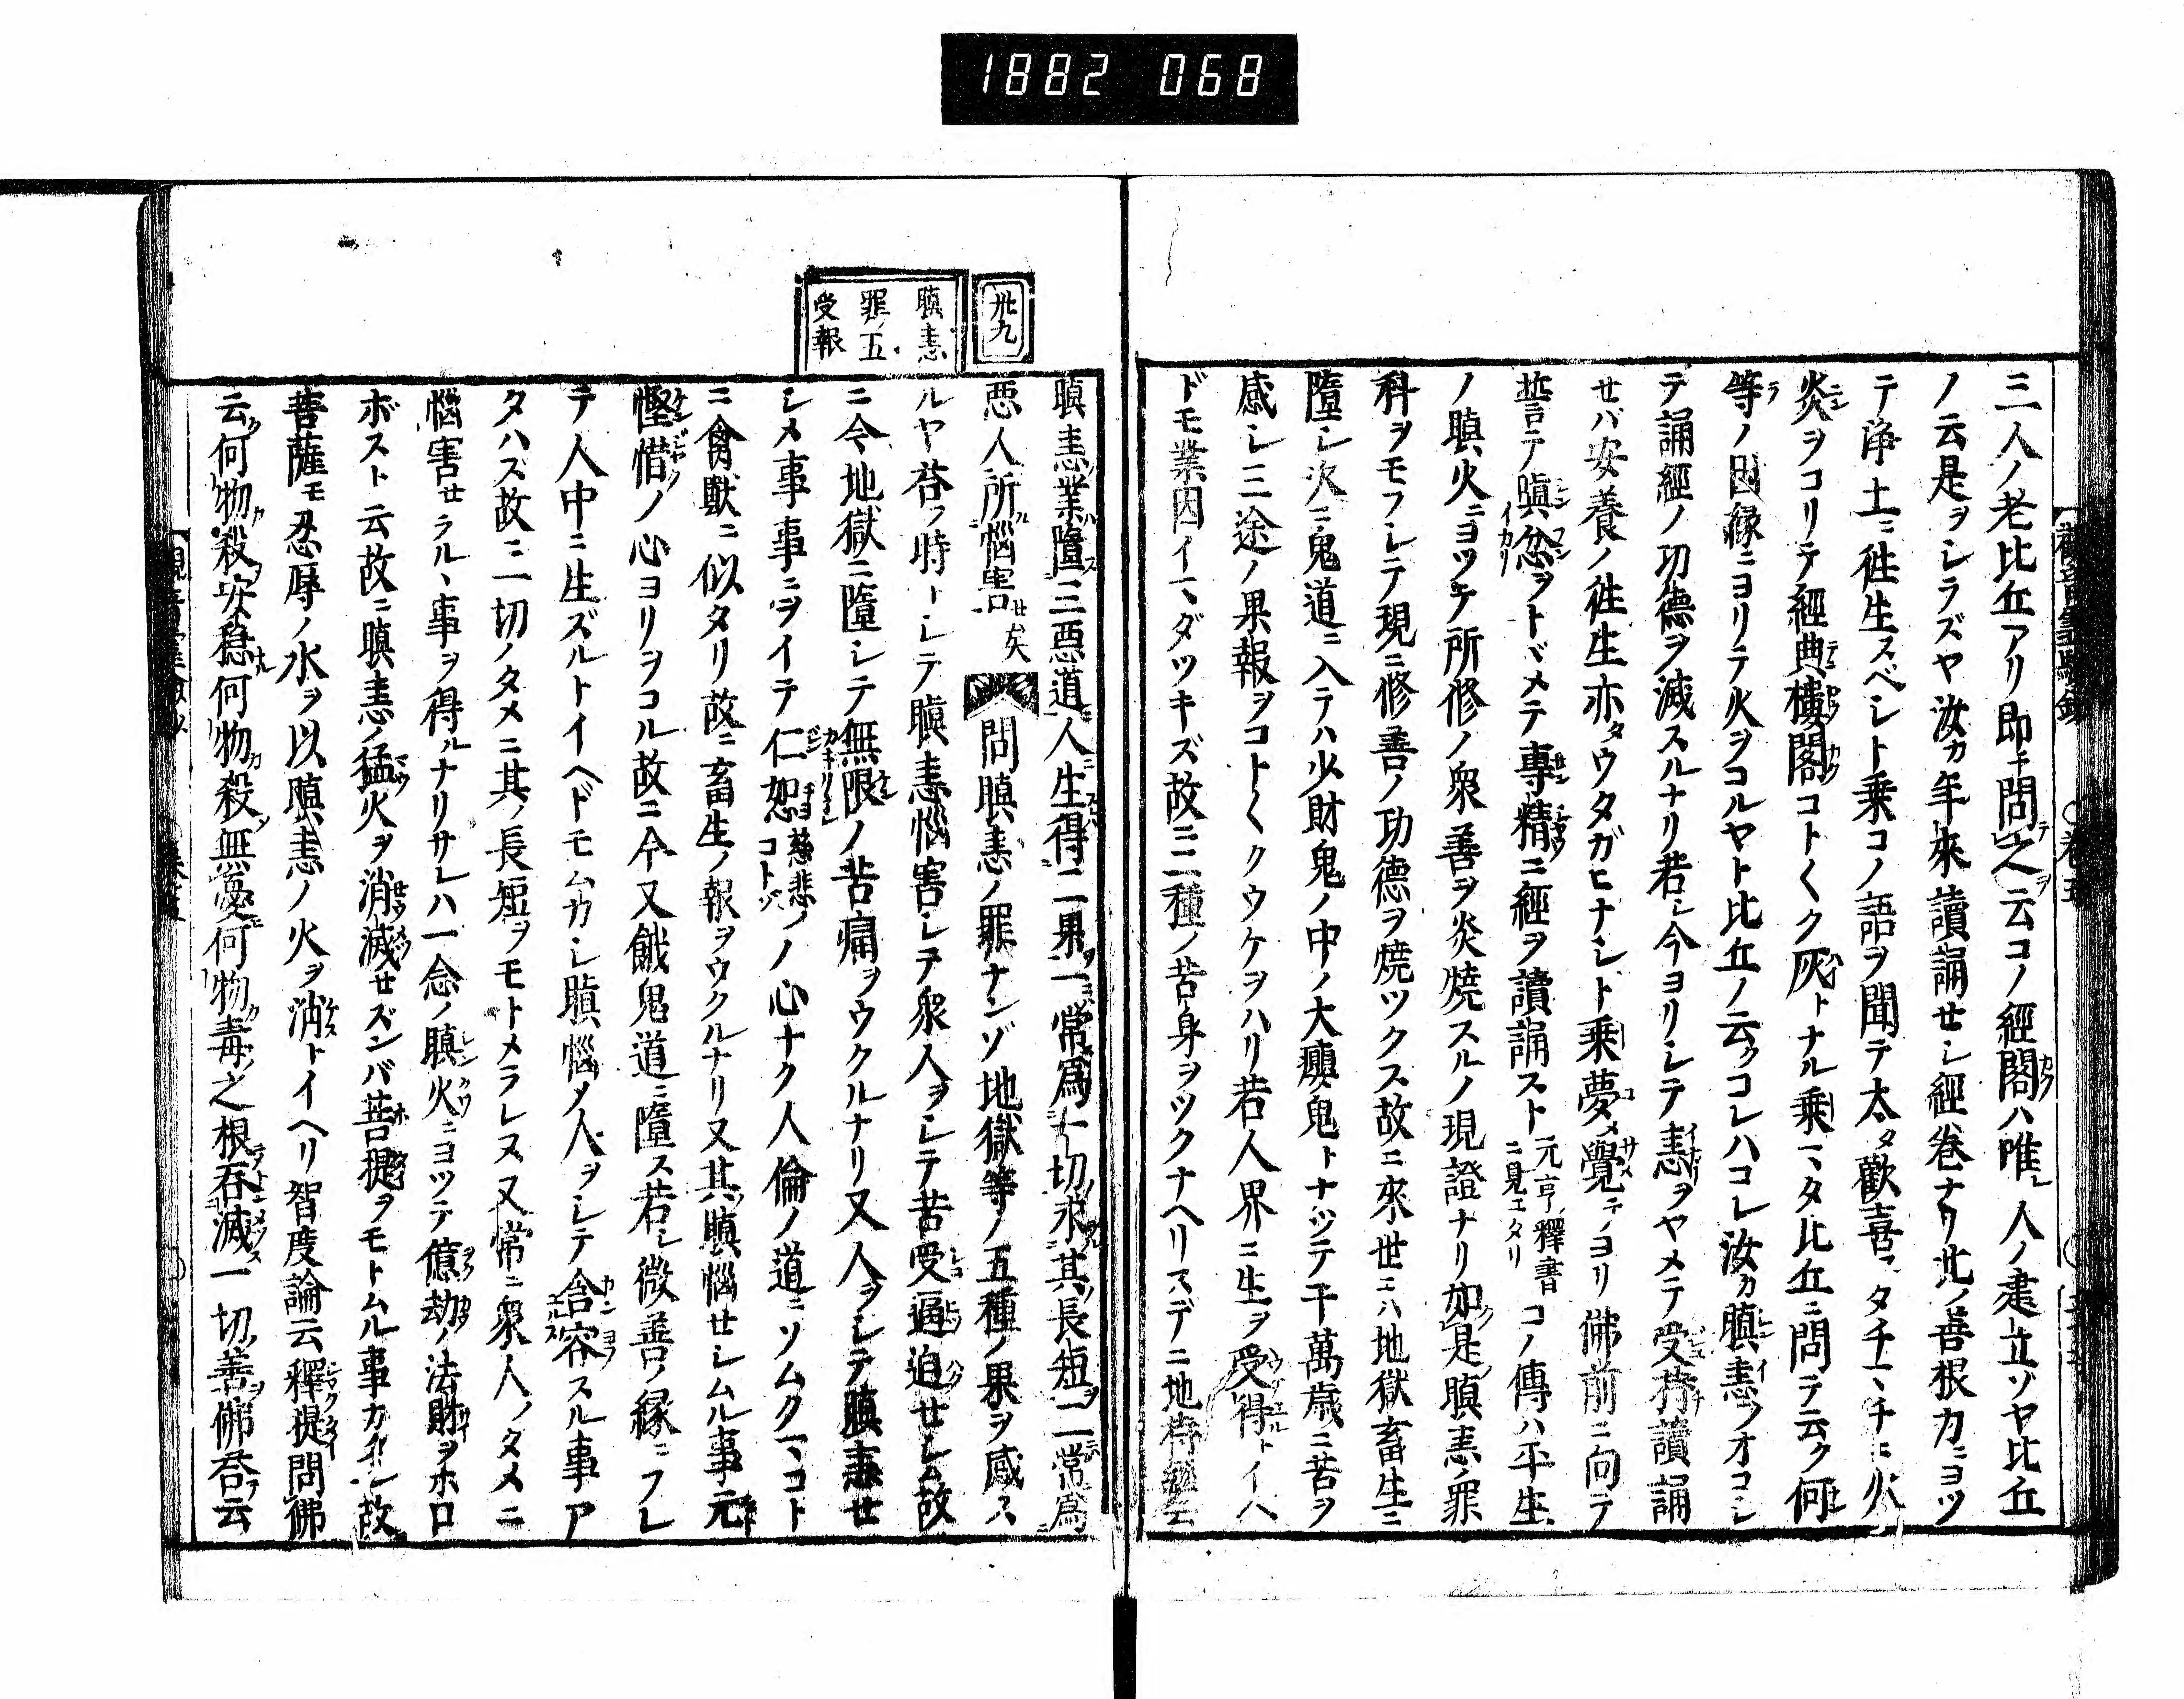 1882 068
三人ノ老比丘アリ即チ問テ之ヲ云コノ經閣ハ唯レ人ノ建立ゾヤ比丘
ノ云是ヲシラズヤ汝カ年來讀誦セシ經卷ナリ此ノ善根力ニヨツ
テ淨土ニ徃生スベシト乗コノ語ヲ聞テ太タ歡喜フタチマチニ火
炎ヲコリテ經典樓閣コト〱ク灰トナル乗マタ比丘ニ問テ云ク何
等ノ因縁ニヨリテ火ヲコルヤト比丘ノ云クコレハコレ汝カ瞋恚ヲオコシ
テ誦經ノ功德ヲ滅スルナリ若シ今ヨリシテ恚ヲヤメテ受持讀誦
セバ安養ノ徃生亦タウタガヒナシト乗夢メ覺テヨリ佛前ニ向テ
誓テ瞋忿ヲトヾメテ專精ニ經ヲ讀誦スト元亨釋書ニ見エタリコノ傳ハ平生
ノ瞋火ニヨツテ所修ノ衆善ヲ炎焼スルノ現證ナリ如是瞋恚ノ罪
科ヲモフレテ現ニ修善ノ功德ヲ焼ツクス故ニ來世ニハ地獄畜生ニ
墮シ次ニ鬼道ニ入テハ少財鬼ノ中ノ大癭鬼トナツテ千萬歳ニ苦ヲ
感シ三途ノ果報ヲコト〱クウケヲハリ若人界ニ生ヲ受得トイヘ
ドモ業因イマダツキズ故ニ二種ノ苦身ヲツクナヘリスデニ地持經云
卅九
瞋恚
罪ノ五
受報
瞋恚業墮三惡道人生得二果一常爲一切求其長短二常爲
惡人所惱害セ矣 問瞋恚ノ罪ナンゾ地獄等ノ五種ノ果ヲ感ス
ルヤ荅フ時トシテ瞋恚惱害シテ衆人ヲシテ苦受逼迫セシム故
ニ今地獄ニ墮シテ無限ノ苦痛ヲウクルナリ又人ヲシテ瞋恚セ
シメ事事ニヲイテ仁恕慈悲ノコトゾノ心ナク人倫ノ道ニソムクマコト
ニ禽獸ニ似タリ故ニ畜生ノ報ヲウクルナリ又其瞋惱セシムル事元
慳惜ノ心ヨリヲコル故ニ今又餓鬼道ニ墮ス若シ微善ノ縁ニフレ
テ人中ニ生ズルトイヘドモムカシ瞋惱メ人ヲシテ含容スル事ア
タハズ故ニ一切ノタメニ其ノ長短ヲモトメラレヌ又常ニ衆人ノタメニ
惱害セラルヽ事ヲ得ルナリサレハ一念ノ瞋火ニヨツテ億劫ノ法財ヲホロ
ボスト云故ニ瞋恚ノ猛火ヲ消滅セズンバ菩提ヲモトムル事カタシ故
菩薩モ忍辱ノ水ヲ以瞋恚ノ火ヲ消トイヘリ智度論云釋提問佛
云何物殺安穩何物殺無憂何物毒之根吞滅一切善佛荅云